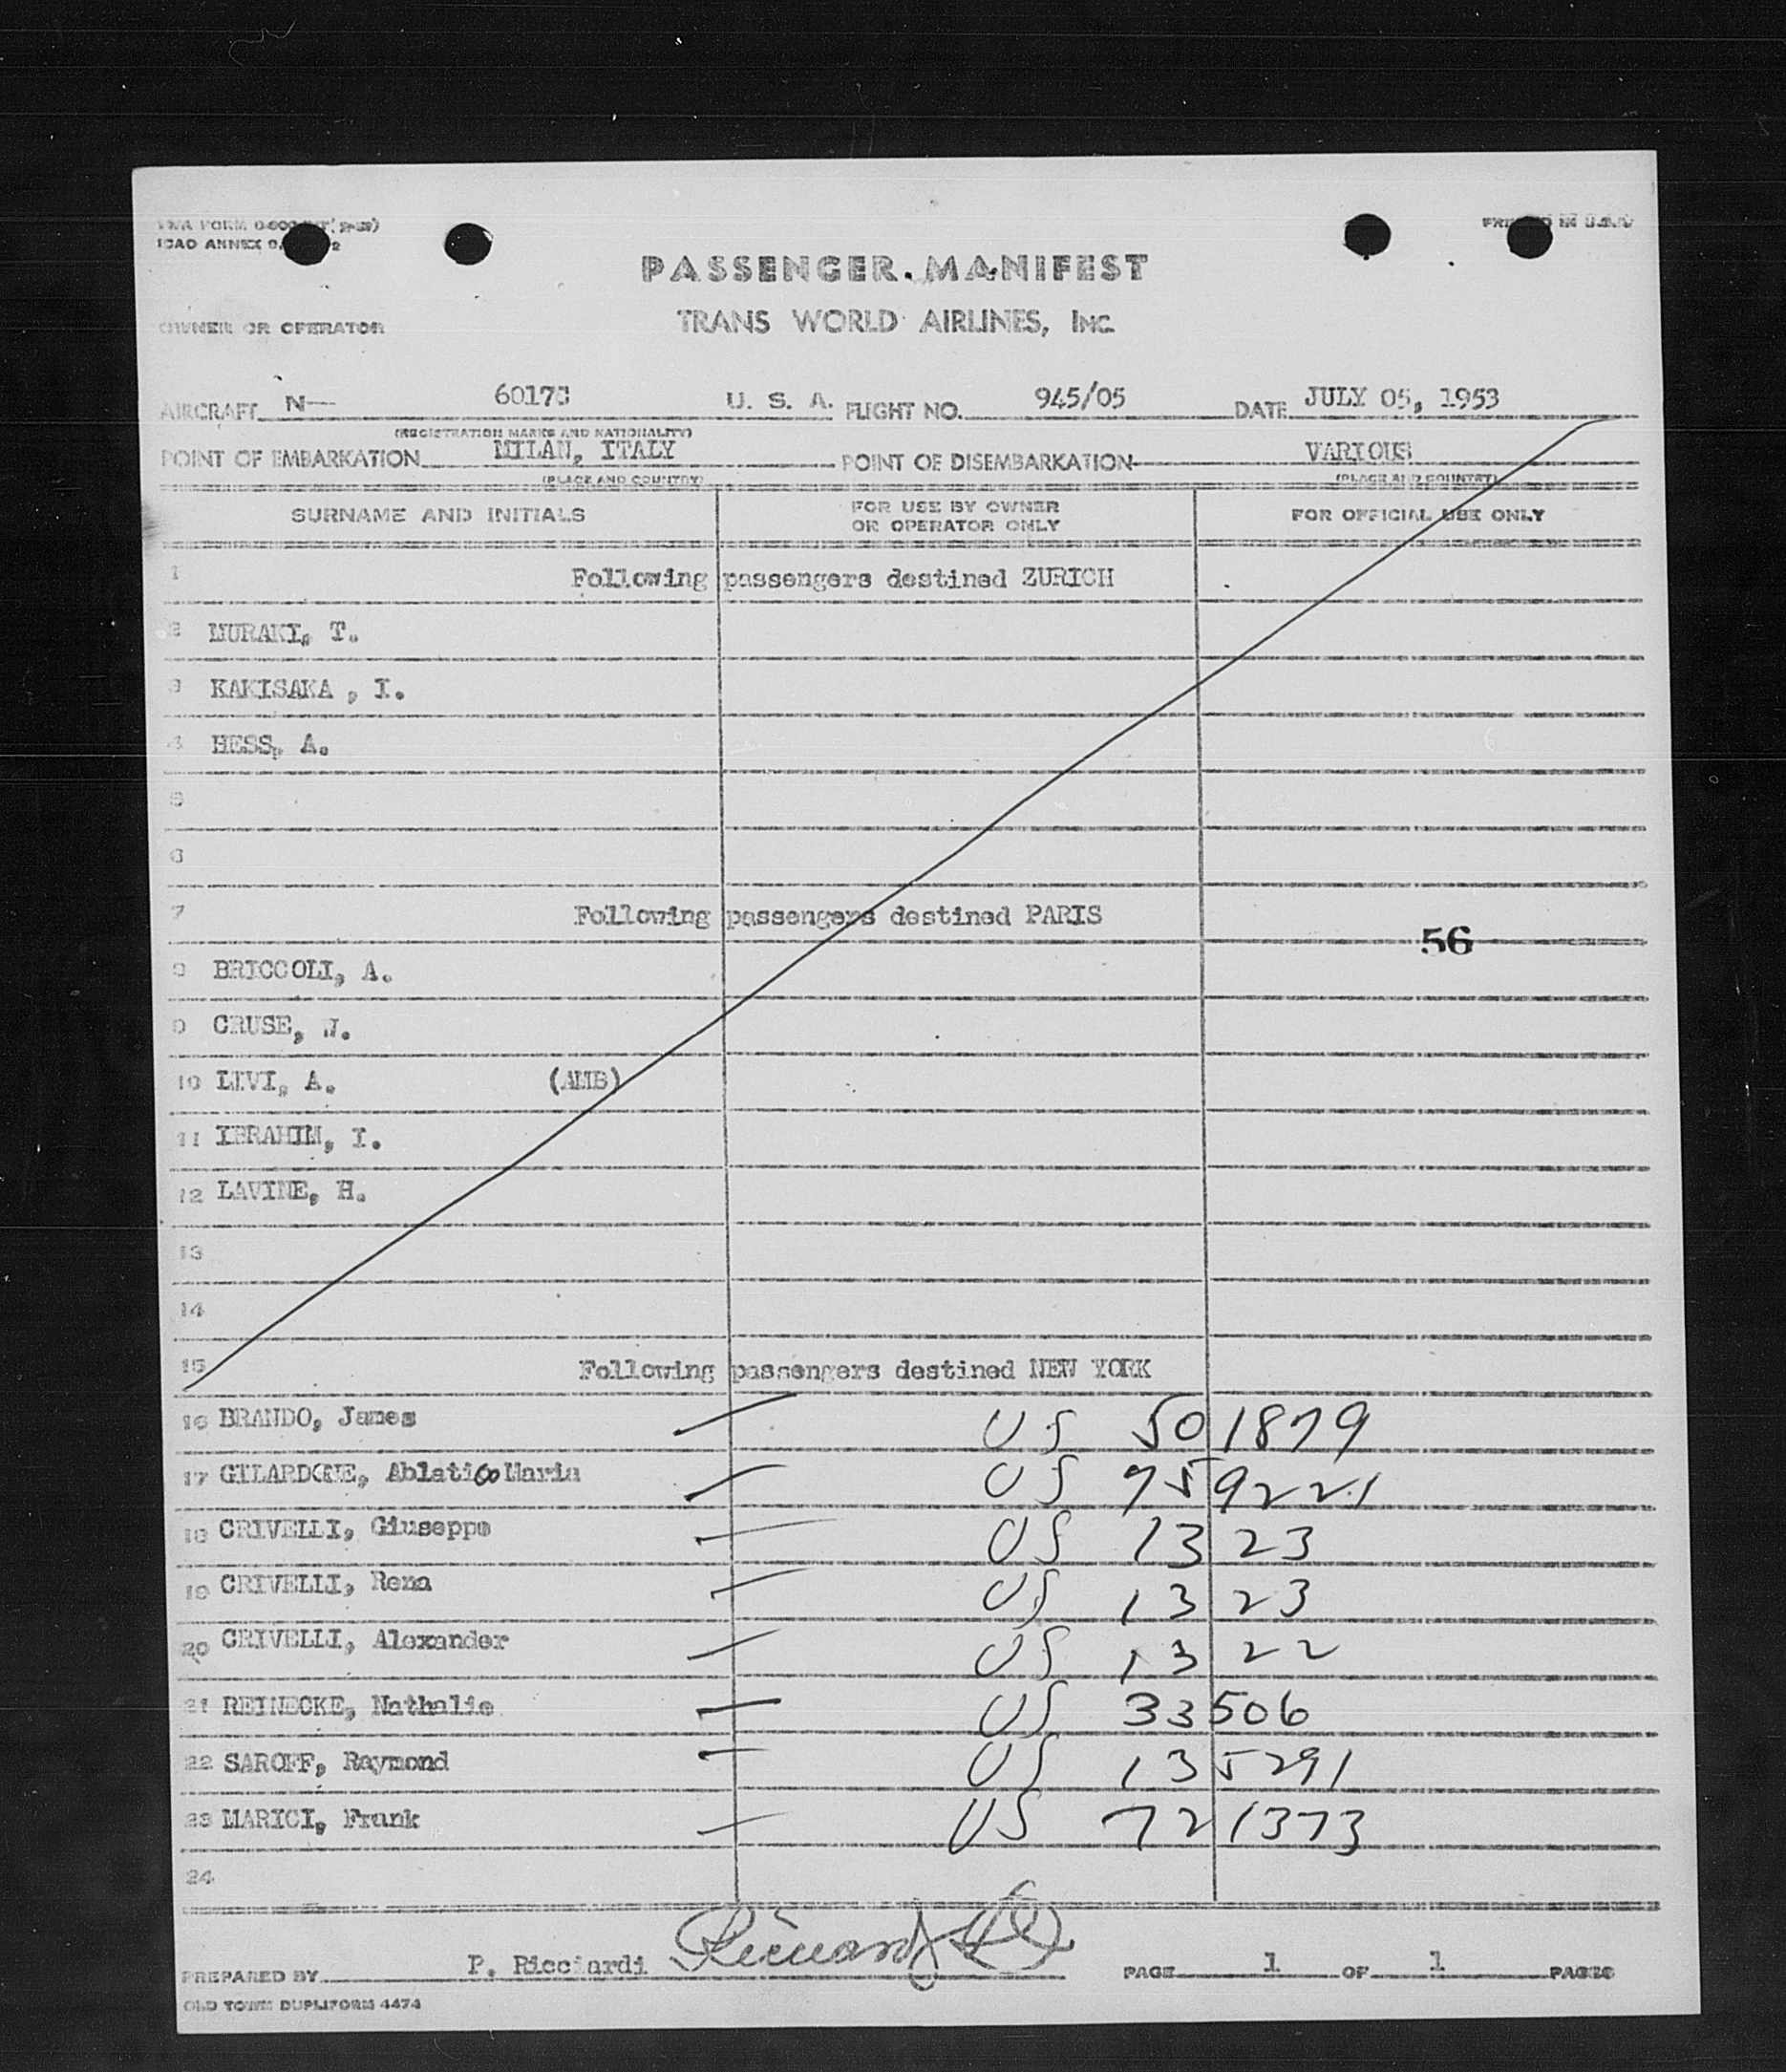 ICAO ANNEX 9,
PASSENGER MANIFEST
OWNER OR OPERATOR TRANS WORLD AIRLINES, INC.
AIRCRAFT N— 6017C U. S. A. FLIGHT NO. 945/05 DATE JULY 05, 1953
(REGISTRATION MARKS AND NATIONALITY)
POINT OF EMBARKATION MILAN, ITALY POINT OF DISEMBARKATION VARIOUS
(PLACE AND COUNTRY) (PLACE AND COUNTRY)
SURNAME AND INITIALS FOR USE BY OWNER OR OPERATOR ONLY FOR OFFICIAL USE ONLY
1 Following passengers destined ZURICH
2 MURAKI, T.
3 KAKISAKA , I.
4 HESS, A.
5
6
7 Following passengers destined PARIS
56
8 BRICCOLI, A.
9 CRUSE, W.
10 LIVI, A. (AMB)
11 IBRAHIM, I.
12 LAVINE, H.
13
14
15 Following passengers destined NEW YORK
16 BRANDO, James — US 501879
17 GILARDONE, Ablatico Maria — US 759221
18 CRIVELLI, Giuseppe — US 1323
19 CRIVELLI, Rena — US 1323
20 CRIVELLI, Alexander — US 1322
21 REINECKE, Nathalie — US 33506
22 SAROFF, Raymond — US 135291
23 MARICI, Frank — US 721373
24
PREPARED BY P. Ricciardi PAGE 1 OF 1 PAGES
OLD TOWN DUPLIFORM 4474